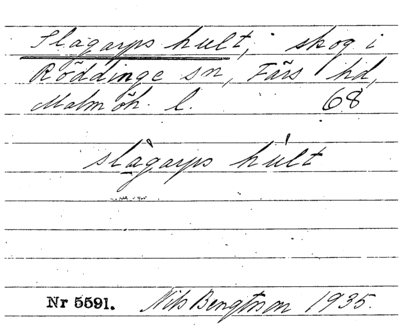 Slagarps hult, skog i
Röddinge sn, Färs hd,
Malmöh. l. 68
slàgarps húlt
Nr 5591. Nils Bengtsson 1935.